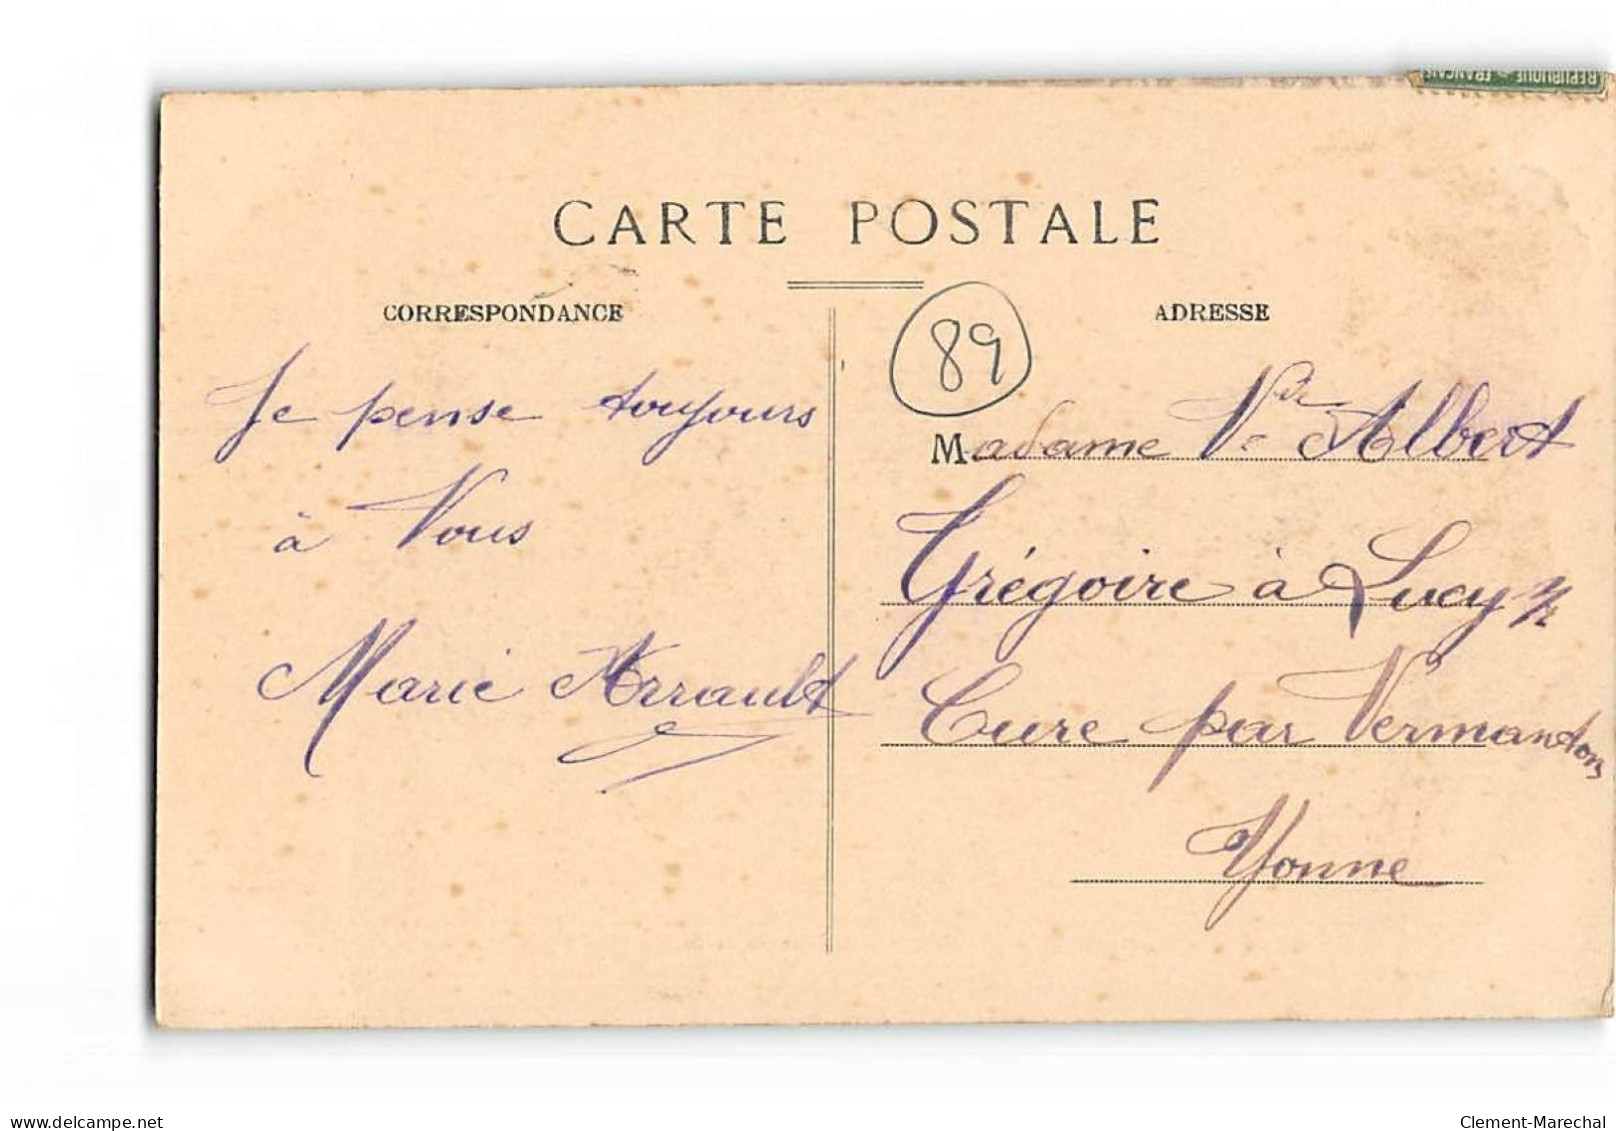 REPUBLIQUE FRANCAIS
CARTE POSTALE
CORRESPONDANCE
ADRESSE
89
Je pense toujours
à Vous
Marie Arrault
Madame Vve Albert
Grégoire à Lucy s/
Cure par Vermanton
Yonne
delcampe.net
Clement-Marechal